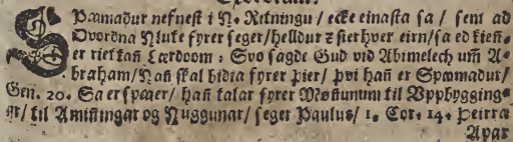 SPæmadur nefnest i H. Ritningu / ecke einasta sa / sem ad
Ovordna Hlute fyrer seger / helldur z sierhver eirn / sa ed kien̄-
er riettan̄ Lærdoom : Svo sagde Gud vid Abimelech um̄ A-
braham / Han̄ skal bidia fyrer þier / þvi han̄ er Spæmadur /
Gen. 20. Sa er spaaer / han̄ talar fyrer Mön̄unum til Uppbygging-
ar / til Amin̄ingar og Huggunar / seger Paulus / 1. Cor. 14. þeirra
Apar